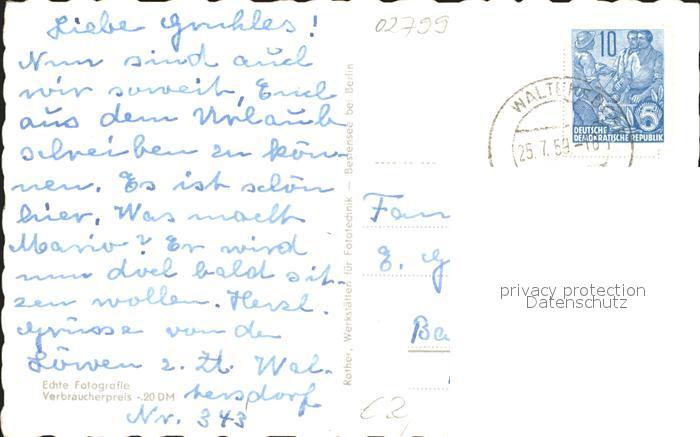 Liebe Gruhles!
Nun sind auch
wir soweit, Euch
aus dem Urlaub
schreiben zu kön-
nen. Es ist schön
hier. Was macht
Mario? Er wird
nun doch bald sit-
zen wollen. Herzl.
Grüsse von den
Löwen z. Zt. Wal-
tersdorf
Nr. 343
Echte Fotografie
Verbraucherpreis -.20 DM
Rother, Werkstätten für Fototechnik — Bestensee bei Berlin
02799
10
DEUTSCHE
DEMOKRATISCHE REPUBLIK
5
25.7.59
Fam
E. G
Ba
privacy protection
Datenschutz